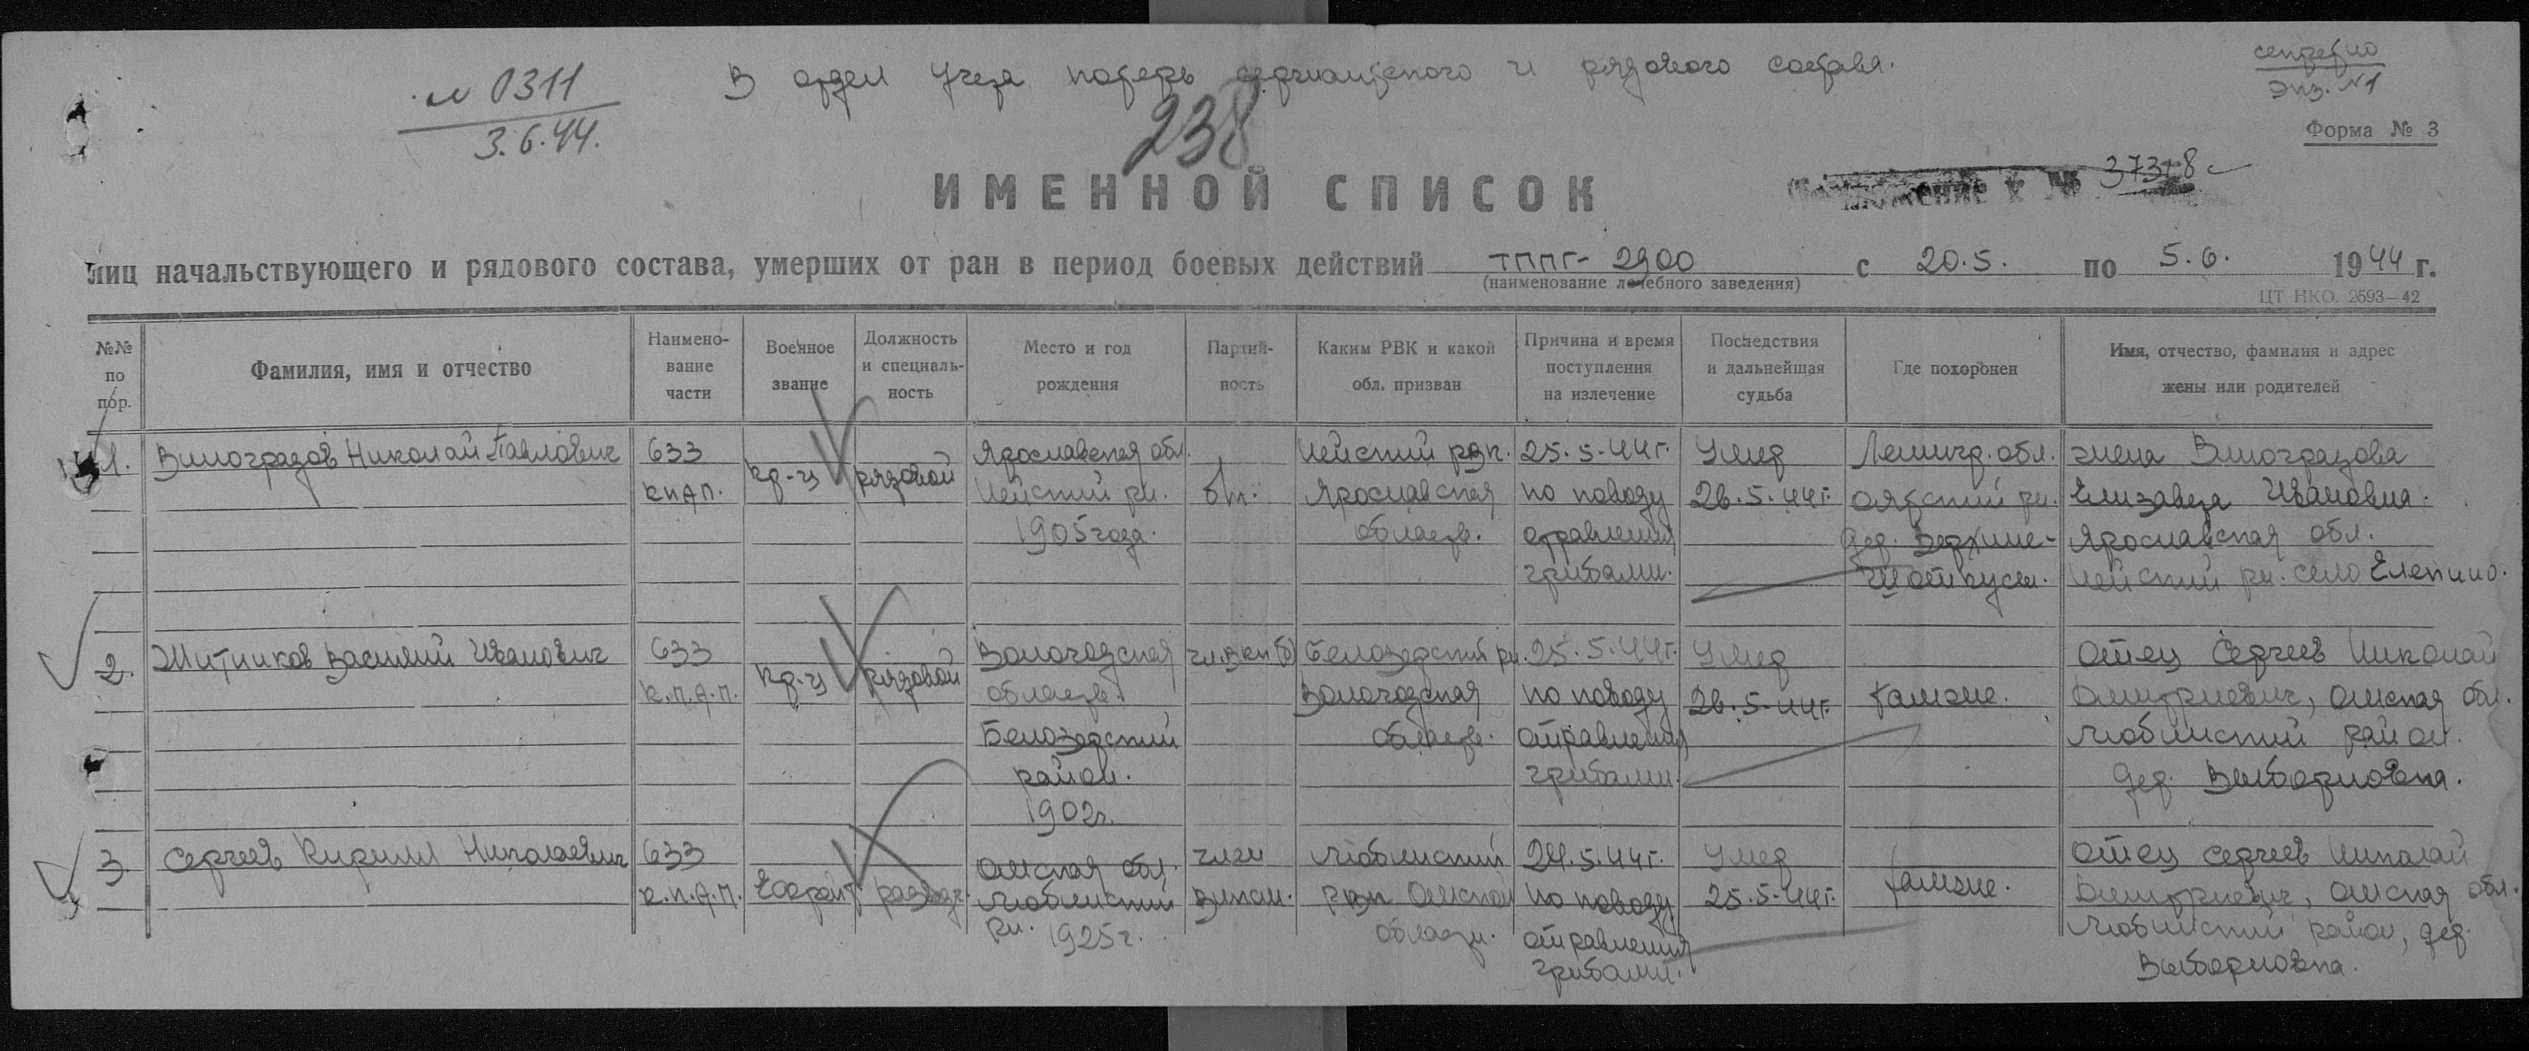 № 0311
3.6.44.
В отдел учета потерь сержантского и рядового состава.
секретно
Экз. №1
238
Форма № 3
ИМЕННОЙ СПИСОК
37378
лиц начальствующего и рядового состава, умерших от ран в период боевых действий ТППГ-2900 с 20.5. по 5.6. 1944 г.
(наименование лечебного заведения)
ЦТ НКО. 2593—42
№№ по пор.
Фамилия, имя и отчество
Наименование части
Военное звание
Должность и специальность
Место и год рождения
Партийность
Каким РВК и какой обл. призван
Причина и время поступления на излечение
Последствия и дальнейшая судьба
Где похоронен
Имя, отчество, фамилия и адрес жены или родителей
1. Виноградов Николай Павлович
633
кпАП.
кр-ц
рядовой
Ярославская обл.
Нейский рн.
1905 года.
б/п.
Нейский рвк.
Ярославская
область.
25.5.44г.
по поводу
отравления
грибами.
Умер
26.5.44г.
Ленингр. обл.
оятский рн.
дер. Верхние-
Шоткусы.
жена Виноградова
Елизавета Ивановна.
Ярославская обл.
Нейский рн. село
2. Житников Василий Иванович
633
к.п.А.П.
кр-ц
рядовой
Вологодская
область.
Белозерский
район.
1902г.
чл.ВКП(б)
Белозерский рн.
Вологодская
область.
25.5.44г.
по поводу
отравления
грибами.
Умер
26.5.44г.
там же.
Отец Сергеев Николай
Дмитриевич, Омская обл.
Любинский район.
дер. Выборновка.
3. Сергеев Кирилл Николаевич
633
к.п.А.П.
Ефрейт
разведч.
Омская обл.
Любинский
рн. 1925г.
член
влксм.
Любинский
рвк Омской
области.
24.5.44г.
по поводу
отравления
грибами.
Умер
25.5.44г.
там же.
Отец Сергеев Николай
Дмитриевич, Омская обл.
Любинский район, дер.
Выборновка.